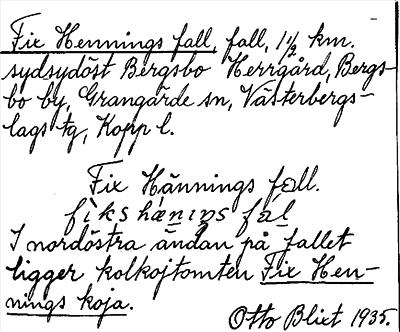 Fix Hennings fall, fall, 1 1/2 km.
sydsydöst Bergsbo Herrgård, Bergs-
bo by, Grangärde sn, Västerbergs-
lags tg, Kopp l.
Fix Hännings fall.
fikshæniŋs fal
I nordöstra ändan på fallet
ligger kolkojtomten Fix Hen-
nings koja.
Otto Blixt 1935.